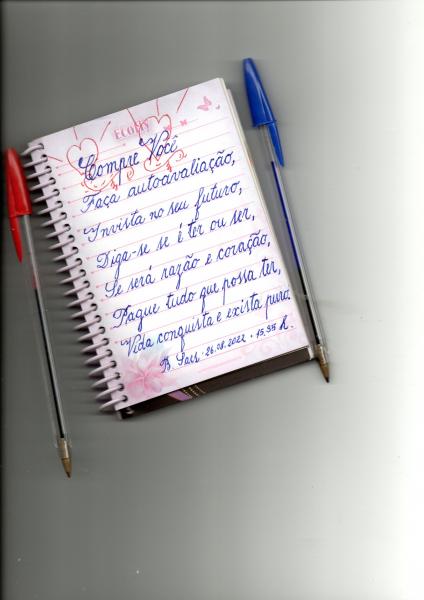 Compre Você
Faça autoavaliação,
Invista no seu futuro,
Diga-se se é ter ou ser,
Se será razão e coração,
Pague tudo que possa ter,
Vida conquista e exista puro.
26.08.2022 . 15.35 h.